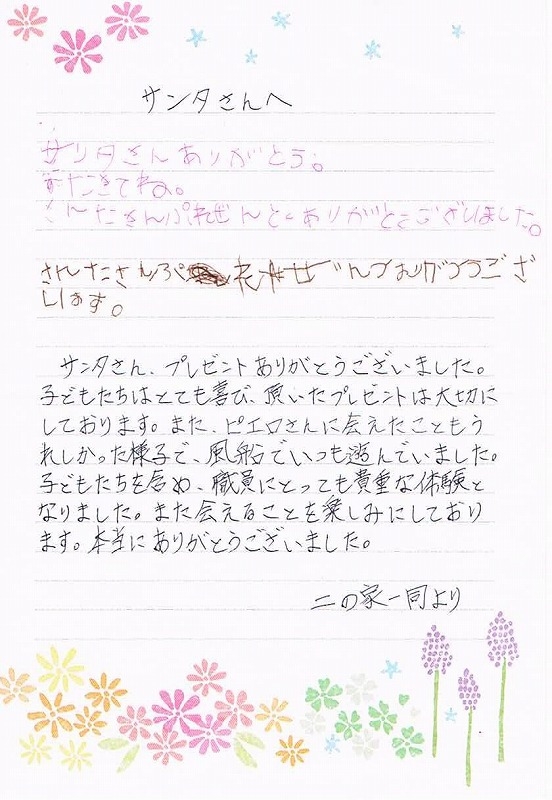 サンタさんへ
サンタさんありがとう。
またきてね。
さんたさんぷれぜんとありがとございました。
さんたさんぷれぜんつありがつうござ
します。
サンタさん、プレゼントありがとうございました。
子どもたちはとても喜び、頂いたプレゼントは大切に
しております。また、ピエロさんに会えたこともう
れしかった様子で、風船でいつも遊んでいました。
子どもたちを含め、職員にとっても貴重な体験と
なりました。また会えることを楽しみにしており
ます。本当にありがとうございました。
二の家一同より